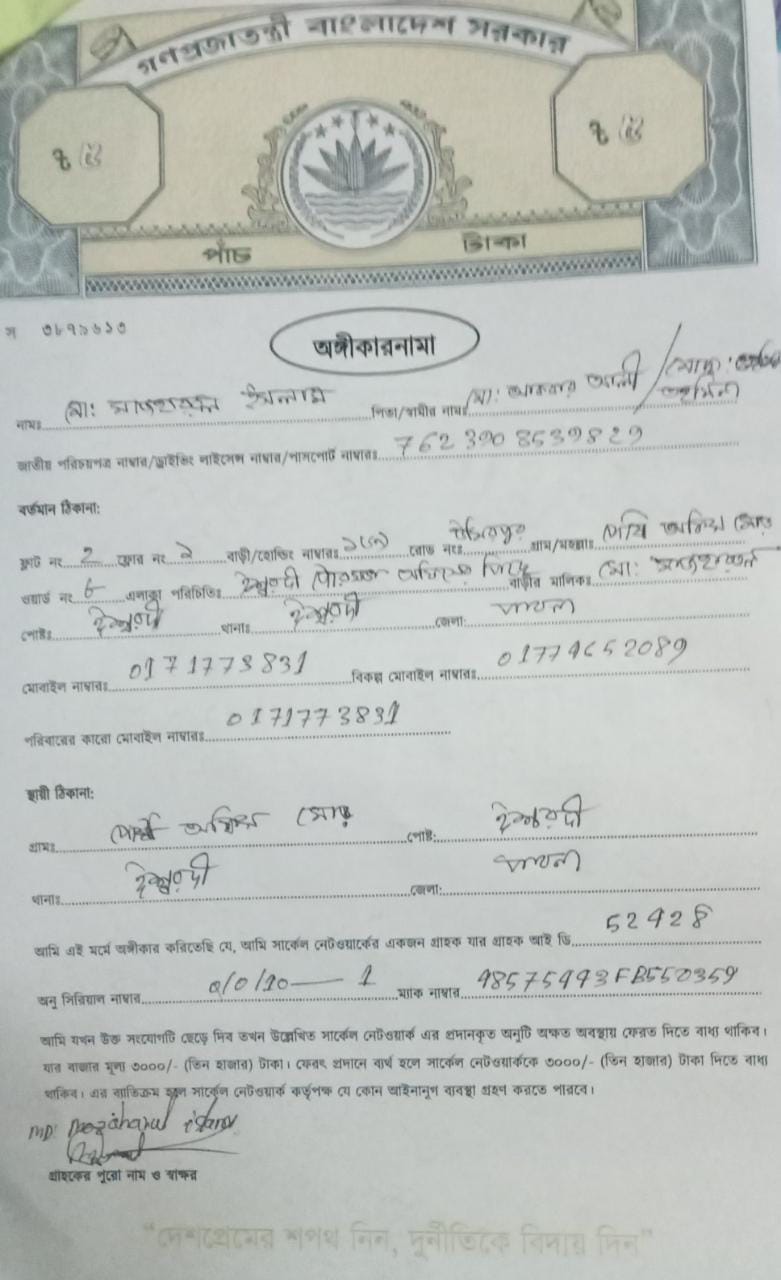 গণপ্রজাতন্ত্রী বাংলাদেশ সরকার
৳ ৫ ৳ ৫
পাঁচ টাকা
অঙ্গীকারনামা
নামঃ মো: ইসলাম পিতা/স্বামীর নামঃ মো: আকবার আলী /
জাতীয় পরিচয়পত্র নাম্বার/ড্রাইভিং লাইসেন্স নাম্বার/পাসপোর্ট নাম্বারঃ 7623908539829
বর্তমান ঠিকানা:
ফ্লাট নং 2 ফ্লোর নং ২ বাড়ী/হোল্ডিং নাম্বারঃ রোড নংঃ গ্রাম/মহল্লাঃ
ওয়ার্ড নং 6 এলাকা পরিচিতিঃ ঈশ্বরদী বাড়ীর মালিকঃ মো:
পোষ্টঃ ঈশ্বরদী থানাঃ ঈশ্বরদী জেলা: পাবনা
মোবাইল নাম্বারঃ 0171773831 বিকল্প মোবাইল নাম্বারঃ 01774652089
পরিবারের কারো মোবাইল নাম্বারঃ 0171773831
স্থায়ী ঠিকানা:
গ্রামঃ মোড় পোষ্ট: ঈশ্বরদী
থানাঃ ঈশ্বরদী জেলা: পাবনা
আমি এই মর্মে অঙ্গীকার করিতেছি যে, আমি সার্কেল নেটওয়ার্কের একজন গ্রাহক যার গ্রাহক আই ডি 52428
অনু সিরিয়াল নাম্বার ম্যাক নাম্বার 48575443FB550359
আমি যখন উক্ত সংযোগটি ছেড়ে দিব তখন উল্লেখিত সার্কেল নেটওয়ার্ক এর প্রদানকৃত অনুটি অক্ষত অবস্থায় ফেরত দিতে বাধ্য থাকিব।
যার বাজার মূল্য ৩০০০/- (তিন হাজার) টাকা। ফেরৎ প্রদানে ব্যর্থ হলে সার্কেল নেটওয়ার্ককে ৩০০০/- (তিন হাজার) টাকা দিতে বাধ্য
থাকিব। এর ব্যতিক্রম হলে সার্কেল নেটওয়ার্ক কর্তৃপক্ষ যে কোন আইনানুগ ব্যবস্থা গ্রহণ করতে পারবে।
MD: islam
গ্রাহকের পুরো নাম ও স্বাক্ষর
"দেশপ্রেমের শপথ নিন, দুর্নীতিকে বিদায় দিন"